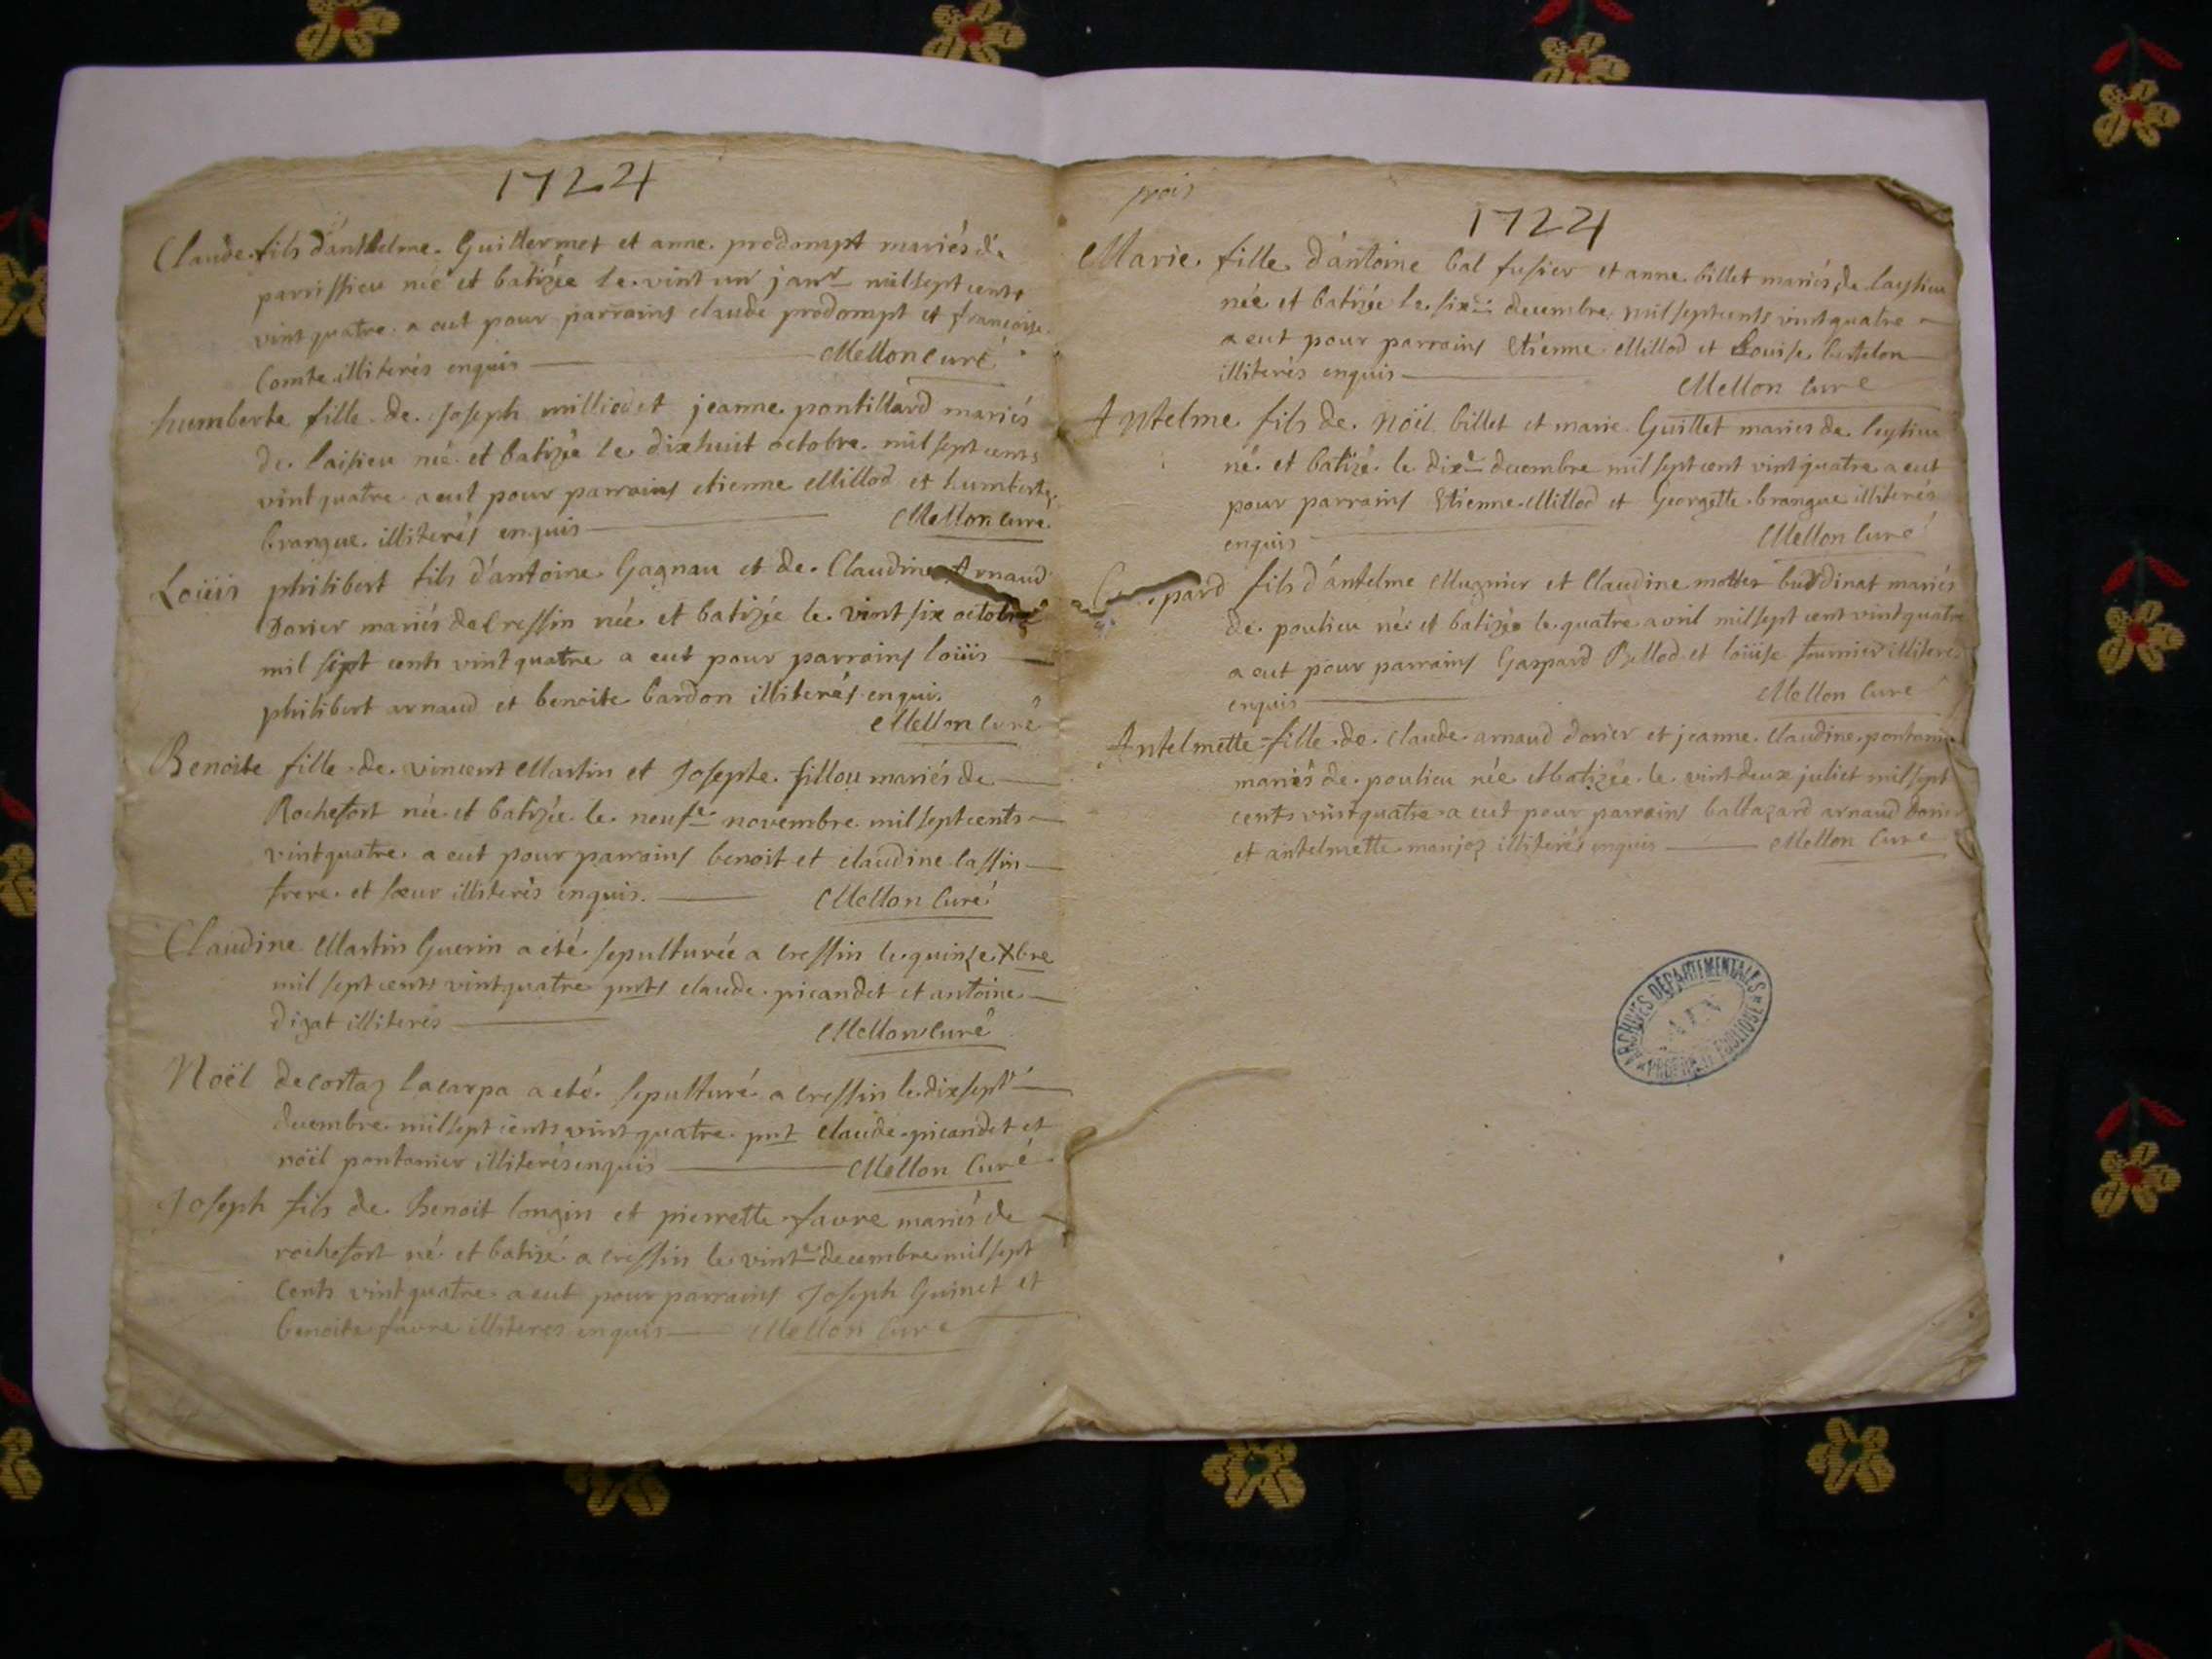 1724
Claude fils d'anthelme Guillermet et anne prodompt mariés de
parrissieu né et batizée le vint un janr mil sept cents
vint quatre a eut pour parrains claude prodompt et francoise
Comte illiterés enquis Mellon curé
humberte fille de Joseph milliod et jeanne pontillard mariés
de laisieu né et batizée le dixhuit octobre mil sept cents
vint quatre a eut pour parrains etienne Millod et humberte
brangue illiterés enquis Mellon curé
Loüis philibert fils d'antoine Gagnau et de Claudine Arnaud
Dorier mariés de Cressin née et batizée le vint six octobre
mil sept cents vint quatre a eut pour parrains loüis
philibert arnaud et benoite bardon illiterés enquis
Mellon curé
Benoite fille de vincent Martin et Josephe fillou mariés de
Rochefort née et batizée le neufe novembre mil sept cents
vint quatre a eut pour parrains benoit et claudine lassin
frere et sœur illiterés enquis. Mellon Curé
Claudine Martin Guerin a été sepulturée a cressin le quinze Xbre
mil sept cents vint quatre pnts claude picandet et antoine
dizat illiterés Mellon Curé
Noël decortaz lacarpa a eté sepulturé a cressin le dix sept
decembre mil sept cents vint quatre pnt Claude picandet et
noël pontanier illiterés enquis Mellon Curé
Joseph fils de Benoit longin et pierrette favre mariés de
rochefort né et batizé a cressin le vinte decembre mil sept
Cents vint quatre a eut pour parrains Joseph Guinet et
benoite favre illiteres enquis Mellon Curé
1724
Marie fille d'antoine bal fusier et anne billet mariés de laysieu
née et batizée le sixe decembre mil sept cents vint quatre
a eut pour parrains Etienne Millod et Louise bertelon
illiterés enquis Mellon Curé
Antelme fils de Noël billet et marie Guillet mariés de leysieu
né et batizé le dixe decembre mil sept cent vint quatre a eut
pour parrains Etienne Millod et Georgette brangue illiterés
enquis Mellon Curé
pard fils d'antelme Mugnier et Claudine mottes burdinat mariés
de poulieu né et batizée le quatre avril mil sept cent vint quatre
a eut pour parrains Gaspard Bellod et loüise fournier illiterés
enquis Mellon Curé
Antelmette fille de claude arnaud dorier et jeanne Claudine
mariés de poulieu née et batizée le vint deux juliet mil sept
cents vint quatre a eut pour parrains baltazard arnaud
et antelmette monjoz illiterés enquis Mellon Curé
ARCHIVES DÉPARTEMENTALES
AIN
PROPRIÉTÉ PUBLIQUE